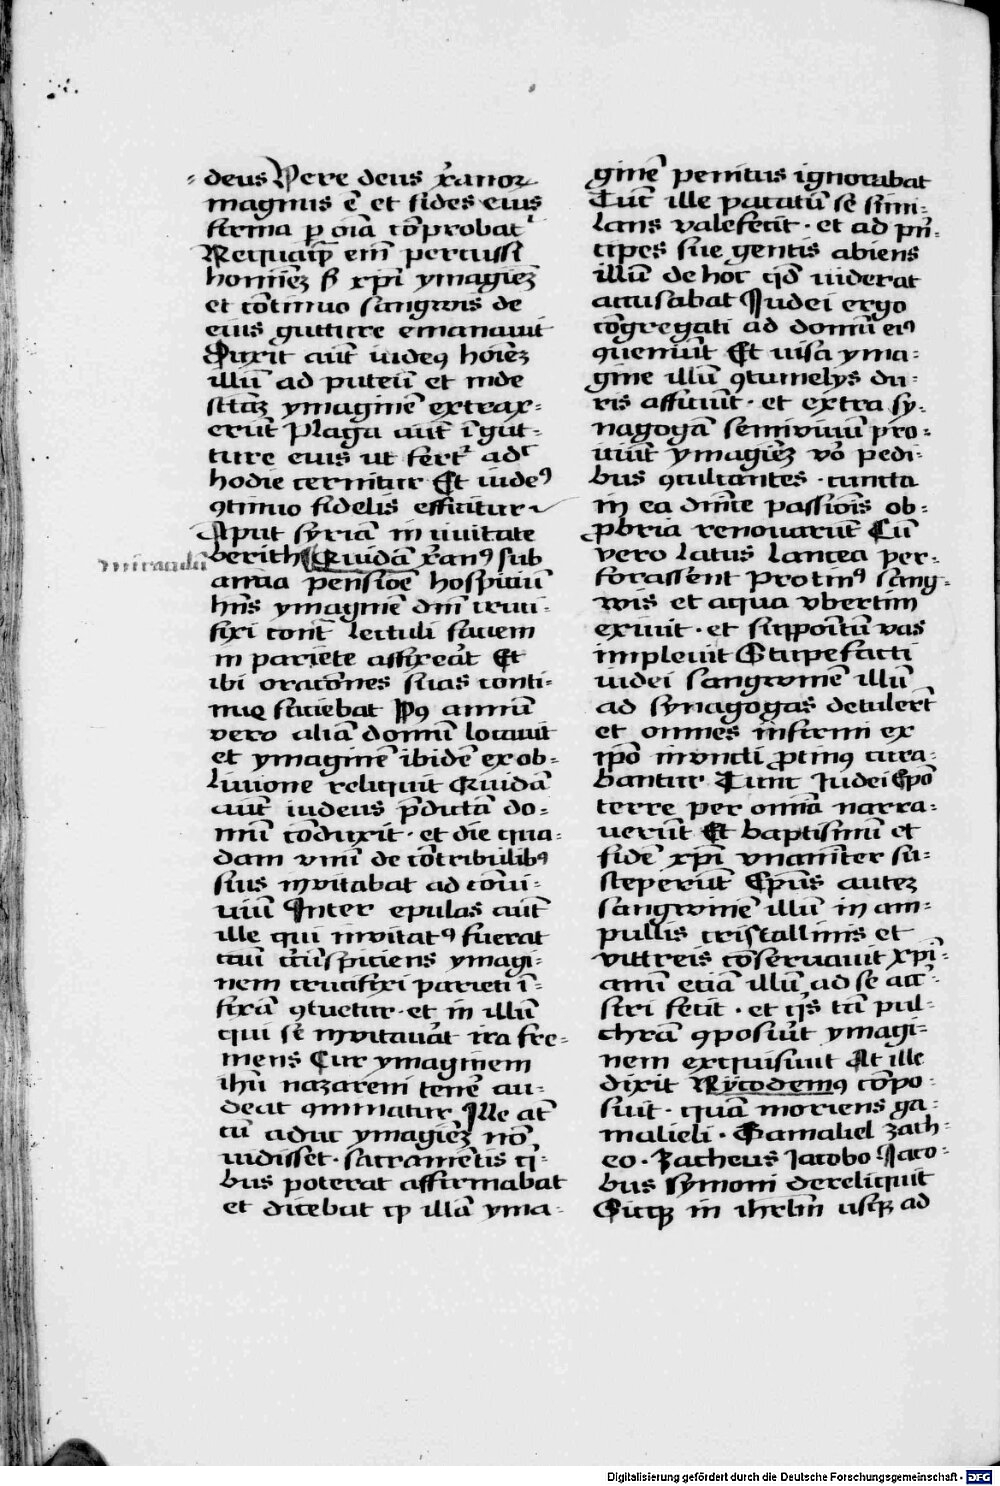 deus Vere deus xp̄anoꝝ
magnus ē et fides eiꝰ
firma ꝑ oīa cōprobat᷑
Nequaꝗ̄ em̄ percussi
homīeꝫ sꝫ xp̄i ymagīeꝫ
et cōtinuo sangwis de
eius gutture emanauit
Duxit aūt iudeꝰ hoīeꝫ
illū ad puteū et inde
sctāꝫ ymaginē extrax⸗
erūt Plaga aūt ī gut⸗
ture eius ut fert᷑ adc̄
hodie cernitur Et iudeꝰ
ꝯtinuo fidelis efficitur
Aput syriā in ciuitate
berith Quidā xp̄anꝰ sub
annua pensiōe hospiciū
hn̄s ymaginē dnī cruci⸗
fixi contͣ lectuli faciem
in pariete affixeat̉ Et
ibi oracōnes suas conti⸗
nue faciebat Pꝰ annū
vero aliā domū locauit
et ymaginē ibidē ex ob⸗
liuione reliquit Quidā
aūt iudeus p̄dictā do⸗
mū cōduxit · et die qua⸗
dam vnū de cōtribulibꝰ
suis inuitabat ad cōui⸗
uiū Inter epulas aūt
ille qui inuitatꝰ fuerat
cāū cͥrcūspiciens ymagi⸗
nem crucifixi parieti ī⸗
fixā ꝯtuetur · et in illū
qui se inuitauat̉ ira fre⸗
mens Cur ymaginem
ihū nazareni tenē au⸗
deat ꝯminatur Ille at̄
cū aduc ymagīeꝫ nō
uidisset · sacramētis qͥ⸗
bus poterat affirmabat
et dicebat ꝙ illā yma⸗
miraculū
ginē penitus ignorabat
Tūc ille pacatū se simi⸗
lans valefecit · et ad prī⸗
cipes sue gentis abiens
illū de hoc qd̄ uiderat
accusabat Iudei ergo
cōgregati ad domū eiꝰ
ꝯueniūt Et uisa yma⸗
gine illū ꝯtumelys du⸗
ris afficiūt · et extra sy⸗
nagogā semiuiuū pro⸗
iciūt ymagīeꝫ vō pedi⸗
bus ꝯculcantes · cuncta
in ea dnīce passiōis ob⸗
ꝓbria renouarūt Cū
vero latus lancea per⸗
forassent Protinꝰ sang⸗
wis et aqua vbertim
exiuit · et suppoītū vas
impleuit Stupefacti
iudei sangwinē illū
ad synagogas detulerūt
et omnes infirmi ex
ip̄o inuncti ꝓtinꝰ cura⸗
bantur Tunc Iudei Ep̄o
terre per omnia narra⸗
uerūt Et baptismū et
fidē xp̄i vnanīter su⸗
sceperūt Ep̄us auteꝫ
sangwinē illū in am⸗
pullis cristallinis et
vittreis cōseruauit xp̄i⸗
anū eciā illū ad se acc̄⸗
siri fecit · et qͥs tā pul⸗
chrā ꝯposuit̉ ymagi⸗
nem exquisiuit At ille
dixit Nycodemꝰ cōpo⸗
suit · quā moriens ga⸗
malieli · Gamaliel zach⸗
eo · Zacheus Iacobo Iaco⸗
bus symoni dereliquit
Sicqꝫ in ihrl̄m usqꝫ ad
Digitalisierung gefördert durch die Deutsche Forschungsgemeinschaft - DFG